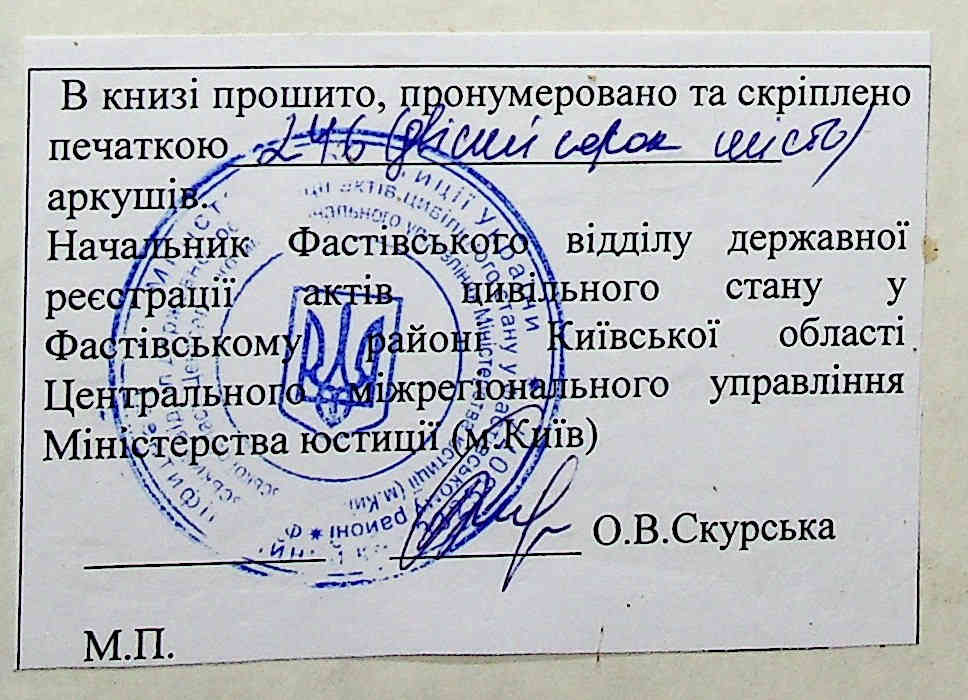 В книзі прошито, пронумеровано та скріплено
печаткою 246 (двісті сорок шість)
аркушів.
Начальник Фастівського відділу державної
реєстрації актів цивільного стану у
Фастівському районі Київської області
Центрального міжрегіонального управління
Міністерства юстиції (м.Київ)
О.В.Скурська
М.П.